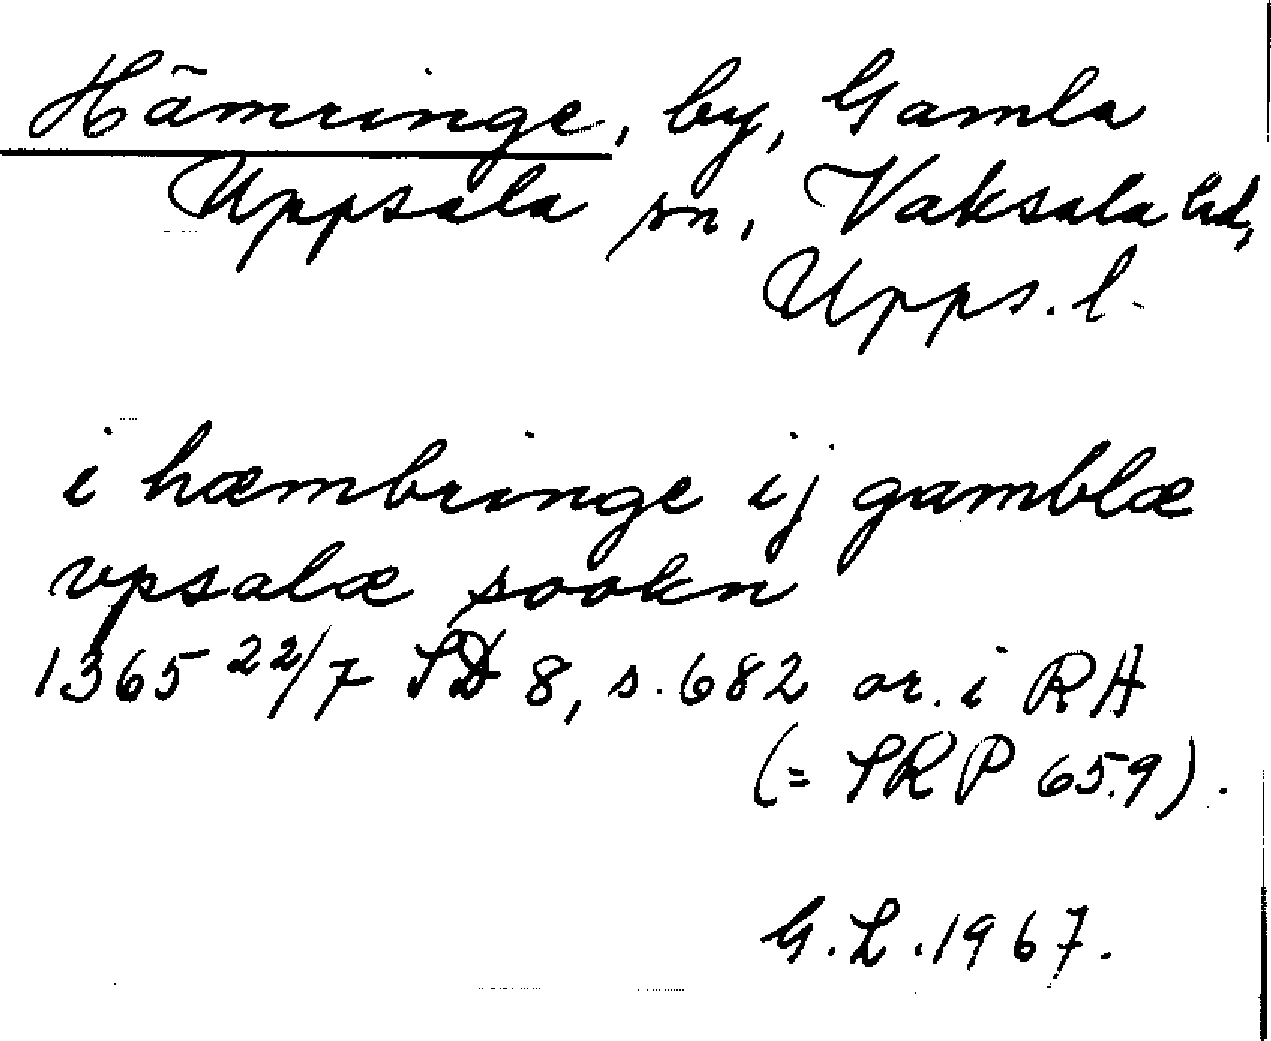 Hämringe, by, Gamla
Uppsala sn, Vaksala hd,
Upps. l.
i hæmbringe ij gamblæ
vpsalæ sookn
1365 22/7 SD 8, s. 682 or. i RA
(= SRP 659).
G. L. 1967.